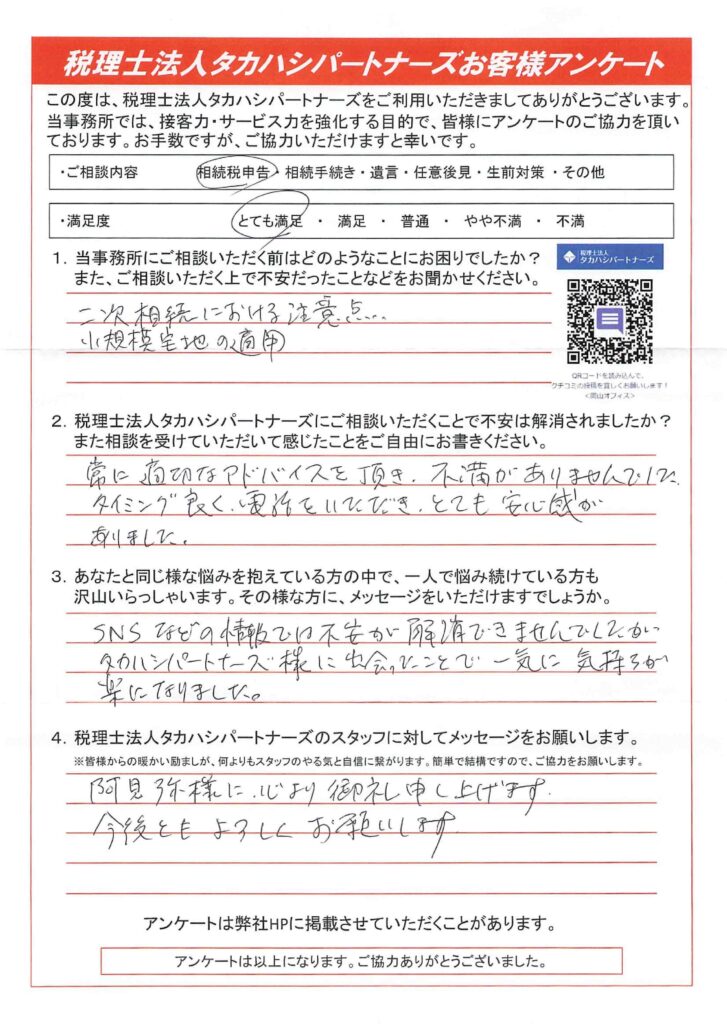 税理士法人タカハシパートナーズお客様アンケート
この度は、税理士法人タカハシパートナーズをご利用いただきましてありがとうございます。
当事務所では、接客力・サービス力を強化する目的で、皆様にアンケートのご協力を頂いております。お手数ですが、ご協力いただけますと幸いです。
・ご相談内容 相続税申告・相続手続き・遺言・任意後見・生前対策・その他
・満足度 とても満足 ・ 満足 ・ 普通 ・ やや不満 ・ 不満
1. 当事務所にご相談いただく前はどのようなことにお困りでしたか?
また、ご相談いただく上で不安だったことなどをお聞かせください。
税理士法人
タカハシパートナーズ
QRコードを読み込んで、
クチコミの投稿を宜しくお願いします!
<岡山オフィス>
二次相続における注意点...
小規模宅地の適用
2. 税理士法人タカハシパートナーズにご相談いただくことで不安は解消されましたか?
また相談を受けていただいて感じたことをご自由にお書きください。
常に適切なアドバイスを頂き、不満がありませんでした。
タイミング良く、電話をいただき、とても安心感が
ありました。
3. あなたと同じ様な悩みを抱えている方の中で、一人で悩み続けている方も
沢山いらっしゃいます。その様な方に、メッセージをいただけますでしょうか。
SNSなどの情報では不安が解消できませんでしたが
タカハシパートナーズ様に出会ったことで一気に気持ちが
楽になりました。
4. 税理士法人タカハシパートナーズのスタッフに対してメッセージをお願いします。
※皆様からの暖かい励ましが、何よりもスタッフのやる気と自信に繋がります。簡単で結構ですので、ご協力をお願いします。
阿見弥様に、心より御礼申し上げます。
今後ともよろしくお願いします。
アンケートは弊社HPに掲載させていただくことがあります。
アンケートは以上になります。ご協力ありがとうございました。